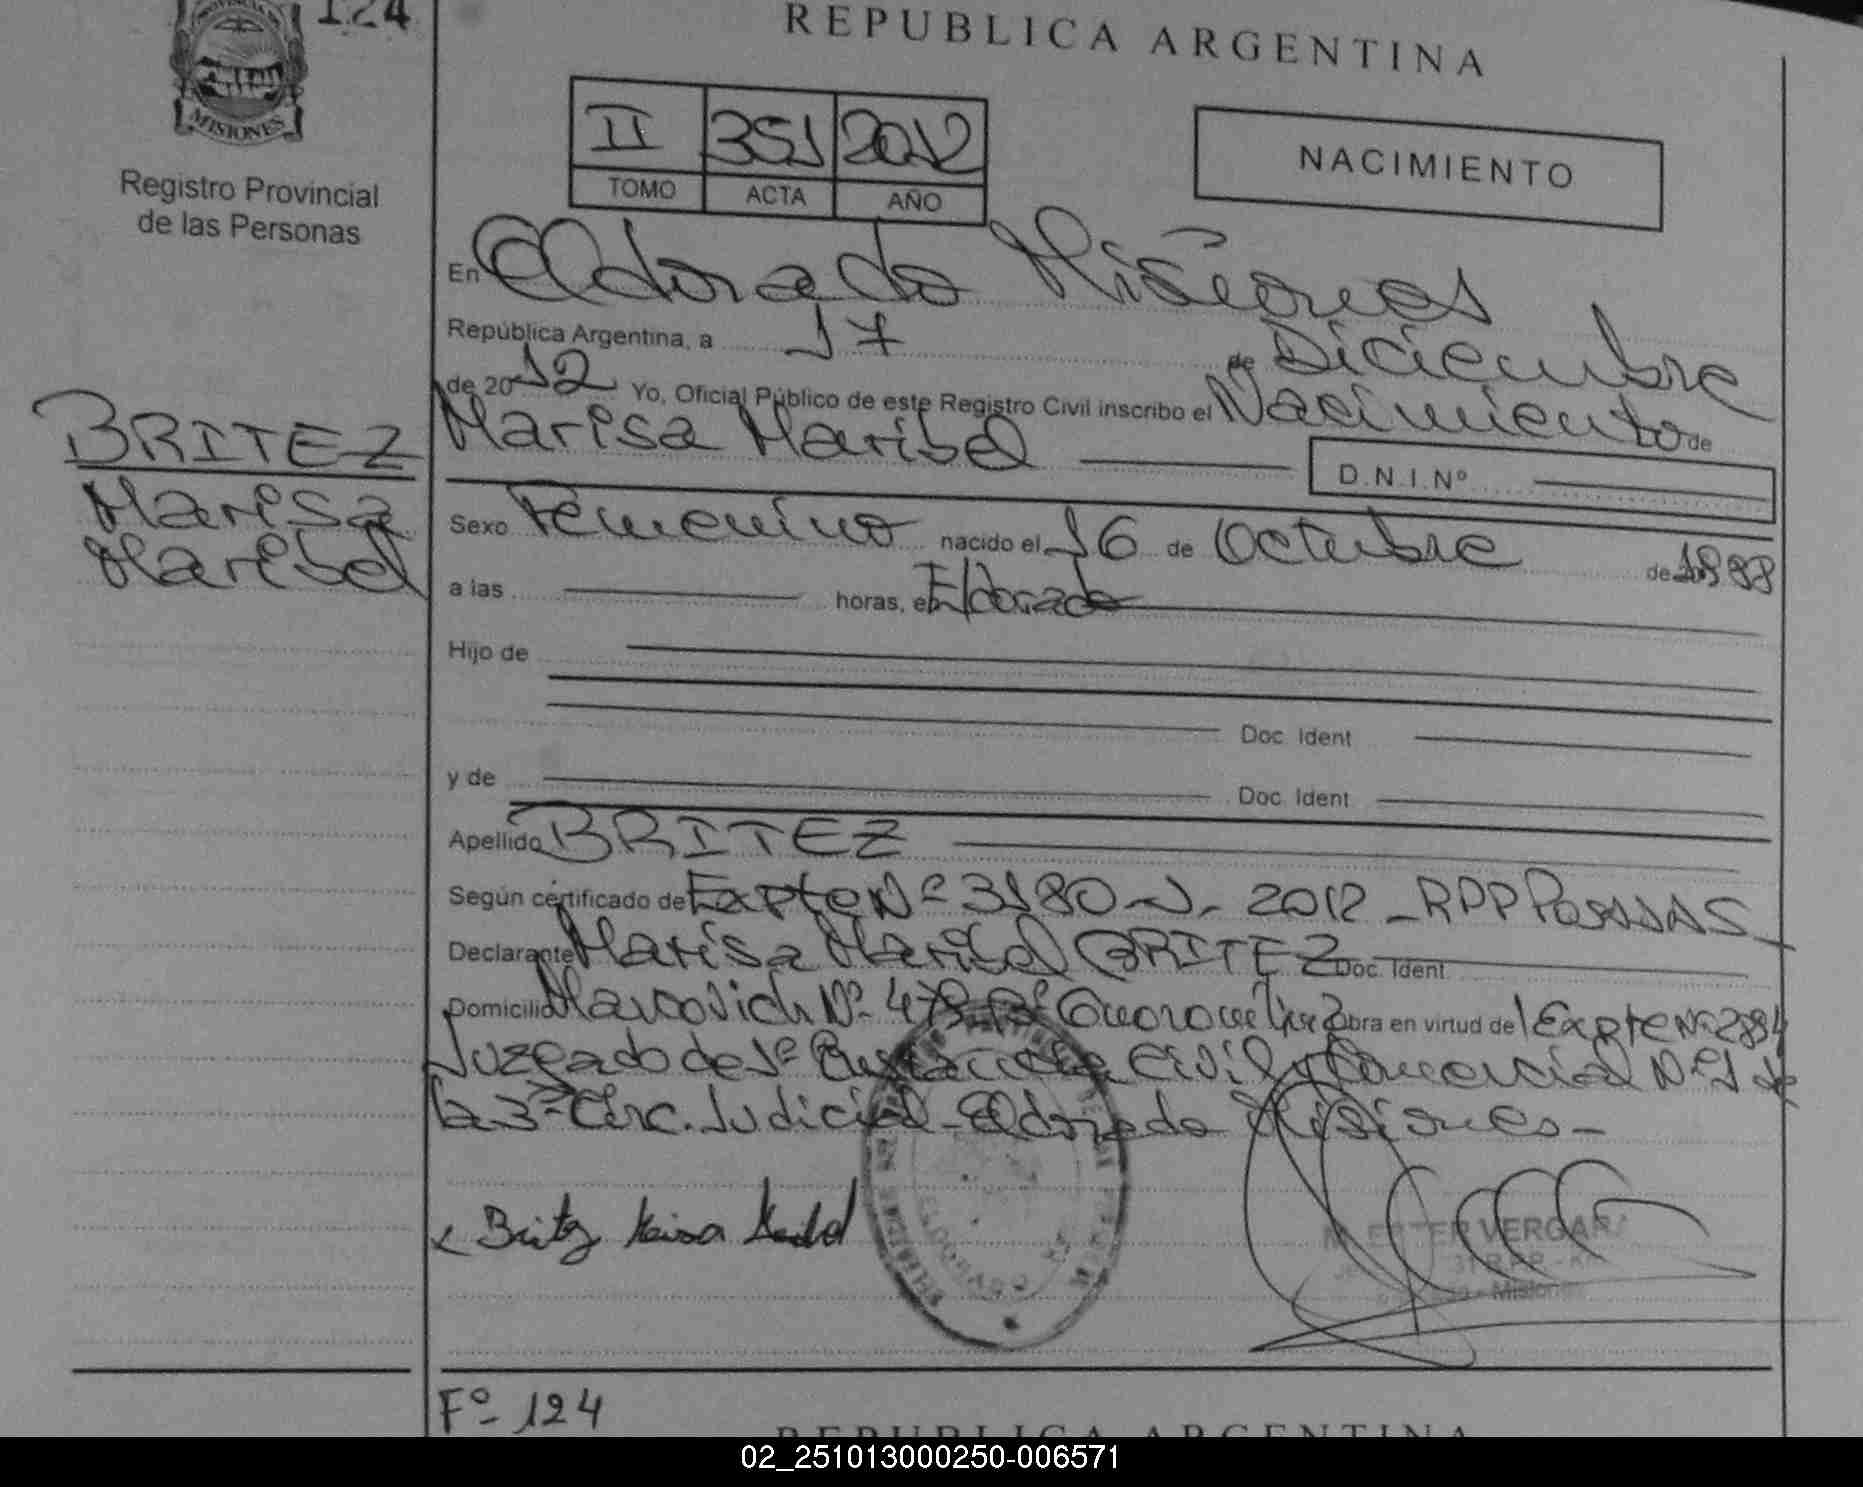 124
MISIONES
Registro Provincial
de las Personas
BRITEZ
Marisa
Maribel
REPUBLICA ARGENTINA
II 351 2012
TOMO ACTA AÑO
NACIMIENTO
En Eldorado Misiones
República Argentina, a 17 de Diciembre
de 2012 Yo, Oficial Público de este Registro Civil inscribo el Nacimiento de
Marisa Maribel D.N.I.Nº
Sexo Femenino nacido el 16 de Octubre de 1988
a las horas, en Eldorado
Hijo de
Doc. Ident
y de Doc. Ident
Apellido BRITEZ
Según certificado de Expte Nº 3180 2012 - RPP Posadas
Declarante Marisa Maribel BRITEZ Doc. Ident
Domicilio Marcovich Nº 478 Bº obra en virtud de Expte Nº
Juzgado de 1º Instancia Civil y Comercial Nº 1 de
la 3º Circ. Judicial - Eldorado Misiones -
Britez Marisa Maribel
ESTER VERGARA
Misiones
Fº 124
REPUBLICA ARGENTINA
02_251013000250-006571